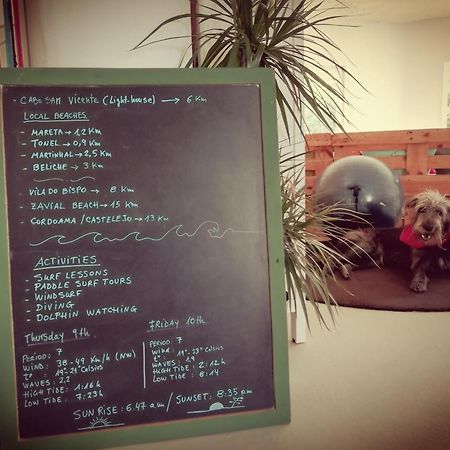 - CABO SAN VICENTE (Light-house) → 6 Km
LOCAL BEACHES
- MARETA → 1,2 Km
- TONEL → 0,9 Km
- MARTINHAL → 2,5 Km
- BELICHE → 3 Km
VILA DO BISPO → 8 Km
- ZAVIAL BEACH → 15 Km
- CORDOAMA / CASTELEJO → 13 Km
ACTIVITIES
- SURF LESSONS
- PADDLE SURF TOURS
- WINDSURF
- DIVING
- DOLPHIN WATCHING
Thursday 9th
PERIOD: 7
WIND: 38-49 Km/h (NW)
tº: 19º-21º Celsius
WAVES: 2.2
HIGH TIDE: 1:16 h
LOW TIDE: 7:23 h
FRIDAY 10th
PERIOD: 7
WIND:
tº: 19º-23º Celsius
WAVES: 1.9
HIGH TIDE: 2:12 h
LOW TIDE: 8:14
SUN RISE: 6:47 a.m / SUNSET: 8:35 a.m